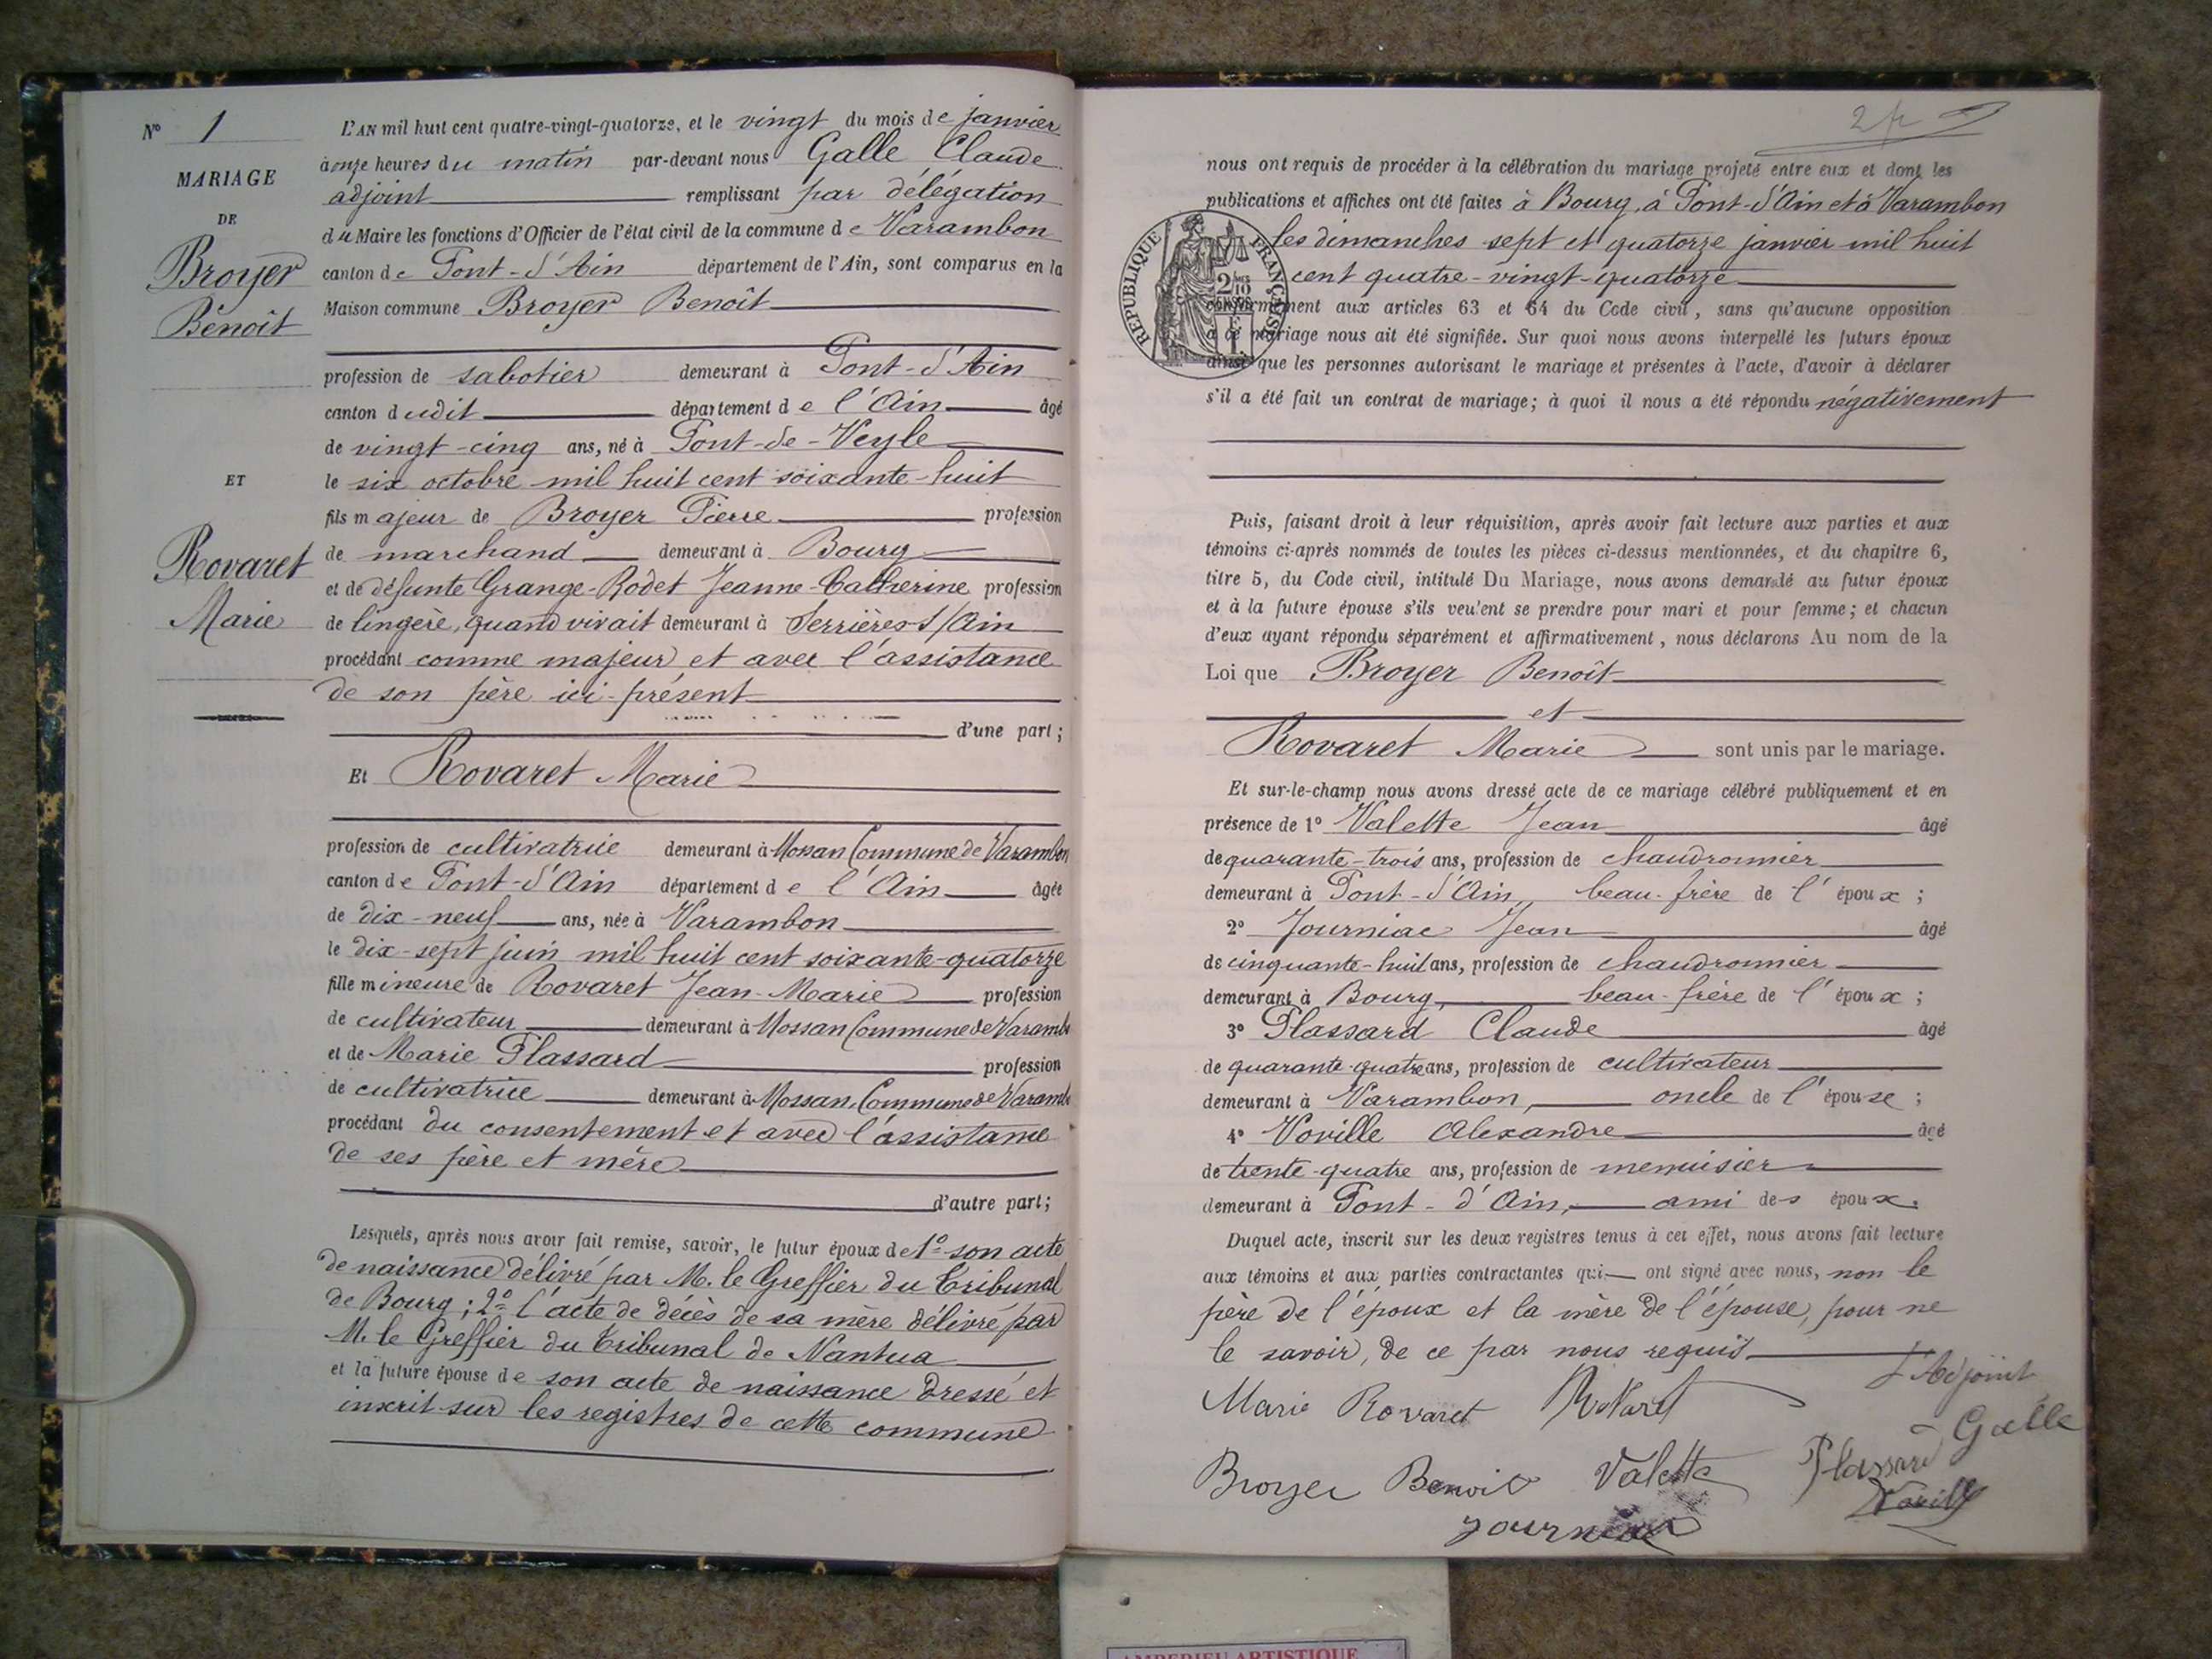 N° 1
MARIAGE
DE
Broyer
Benoît
ET
Rovaret
Marie
L'AN mil huit cent quatre-vingt-quatorze, et le vingt du mois de janvier
à onze heures du matin par-devant nous Galle Claude
adjoint remplissant par délégation
du Maire les fonctions d'Officier de l'état civil de la commune de Varambon
canton de Pont-d'Ain département de l'Ain, sont comparus en la
Maison commune Broyer Benoît
profession de sabotier demeurant à Pont-d'Ain
canton dudit département de l'Ain âgé
de vingt-cinq ans, né à Pont-de-Veyle
le six octobre mil huit cent soixante-huit
fils majeur de Broyer Pierre profession
de marchand demeurant à Bourg
et de défunte Grange-Rodet Jeanne-Catherine profession
de lingère, quand vivait demeurant à Serrières s/Ain
procédant comme majeur et avec l'assistance
de son père ici-présent
d'une part;
Et Rovaret Marie
profession de cultivatrice demeurant à Mossan Commune de Varambon
canton de Pont-d'Ain département de l'Ain âgée
de dix-neuf ans, née à Varambon
le dix-sept juin mil huit cent soixante-quatorze
fille mineure de Rovaret Jean-Marie profession
de cultivateur demeurant à Mossan Commune de Varamb
et de Marie Plassard profession
de cultivatrice demeurant à Mossan, Commune de Varamb
procédant du consentement et avec l'assistance
de ses père et mère
d'autre part;
Lesquels, après nous avoir fait remise, savoir, le futur époux de 1° son acte
de naissance délivré par M. le Greffier du Tribunal
de Bourg; 2° l'acte de décès de sa mère délivré par
M. le Greffier du Tribunal de Nantua
et la future épouse de son acte de naissance dressé et
inscrit sur les registres de cette commune
2 fr
nous ont requis de procéder à la célébration du mariage projeté entre eux et dont les
publications et affiches ont été faites à Bourg, à Pont-d'Ain et à Varambon
les dimanches sept et quatorze janvier mil huit
cent quatre-vingt-quatorze
REPUBLIQUE FRANÇAISE
conformément aux articles 63 et 64 du Code civil, sans qu'aucune opposition
à ce mariage nous ait été signifiée. Sur quoi nous avons interpellé les futurs époux
ainsi que les personnes autorisant le mariage et présentes à l'acte, d'avoir à déclarer
s'il a été fait un contrat de mariage; à quoi il nous a été répondu négativement
Puis, faisant droit à leur réquisition, après avoir fait lecture aux parties et aux
témoins ci-après nommés de toutes les pièces ci-dessus mentionnées, et du chapitre 6,
titre 5, du Code civil, intitulé Du Mariage, nous avons demandé au futur époux
et à la future épouse s'ils veulent se prendre pour mari et pour femme; et chacun
d'eux ayant répondu séparément et affirmativement, nous déclarons Au nom de la
Loi que Broyer Benoît
et
Rovaret Marie sont unis par le mariage.
Et sur-le-champ nous avons dressé acte de ce mariage célébré publiquement et en
présence de 1° Valette Jean âgé
de quarante-trois ans, profession de chaudronnier
demeurant à Pont-d'Ain, beau-frère de l'époux;
2° Journiac Jean âgé
de cinquante-huit ans, profession de chaudronnier
demeurant à Bourg, beau-frère de l'époux;
3° Plassard Claude âgé
de quarante-quatre ans, profession de cultivateur
demeurant à Varambon, oncle de l'épouse;
4° Voville Alexandre âgé
de trente-quatre ans, profession de menuisier
demeurant à Pont-d'Ain, ami des époux.
Duquel acte, inscrit sur les deux registres tenus à cet effet, nous avons fait lecture
aux témoins et aux parties contractantes qui ont signé avec nous, non le
père de l'époux et la mère de l'épouse, pour ne
le savoir, de ce par nous requis
L'Adjoint
Marie Rovaret Rovaret
Galle
Broyer Benoit Valette Plassard
Voville
Journiac
AMBERIEU ARTISTIQUE